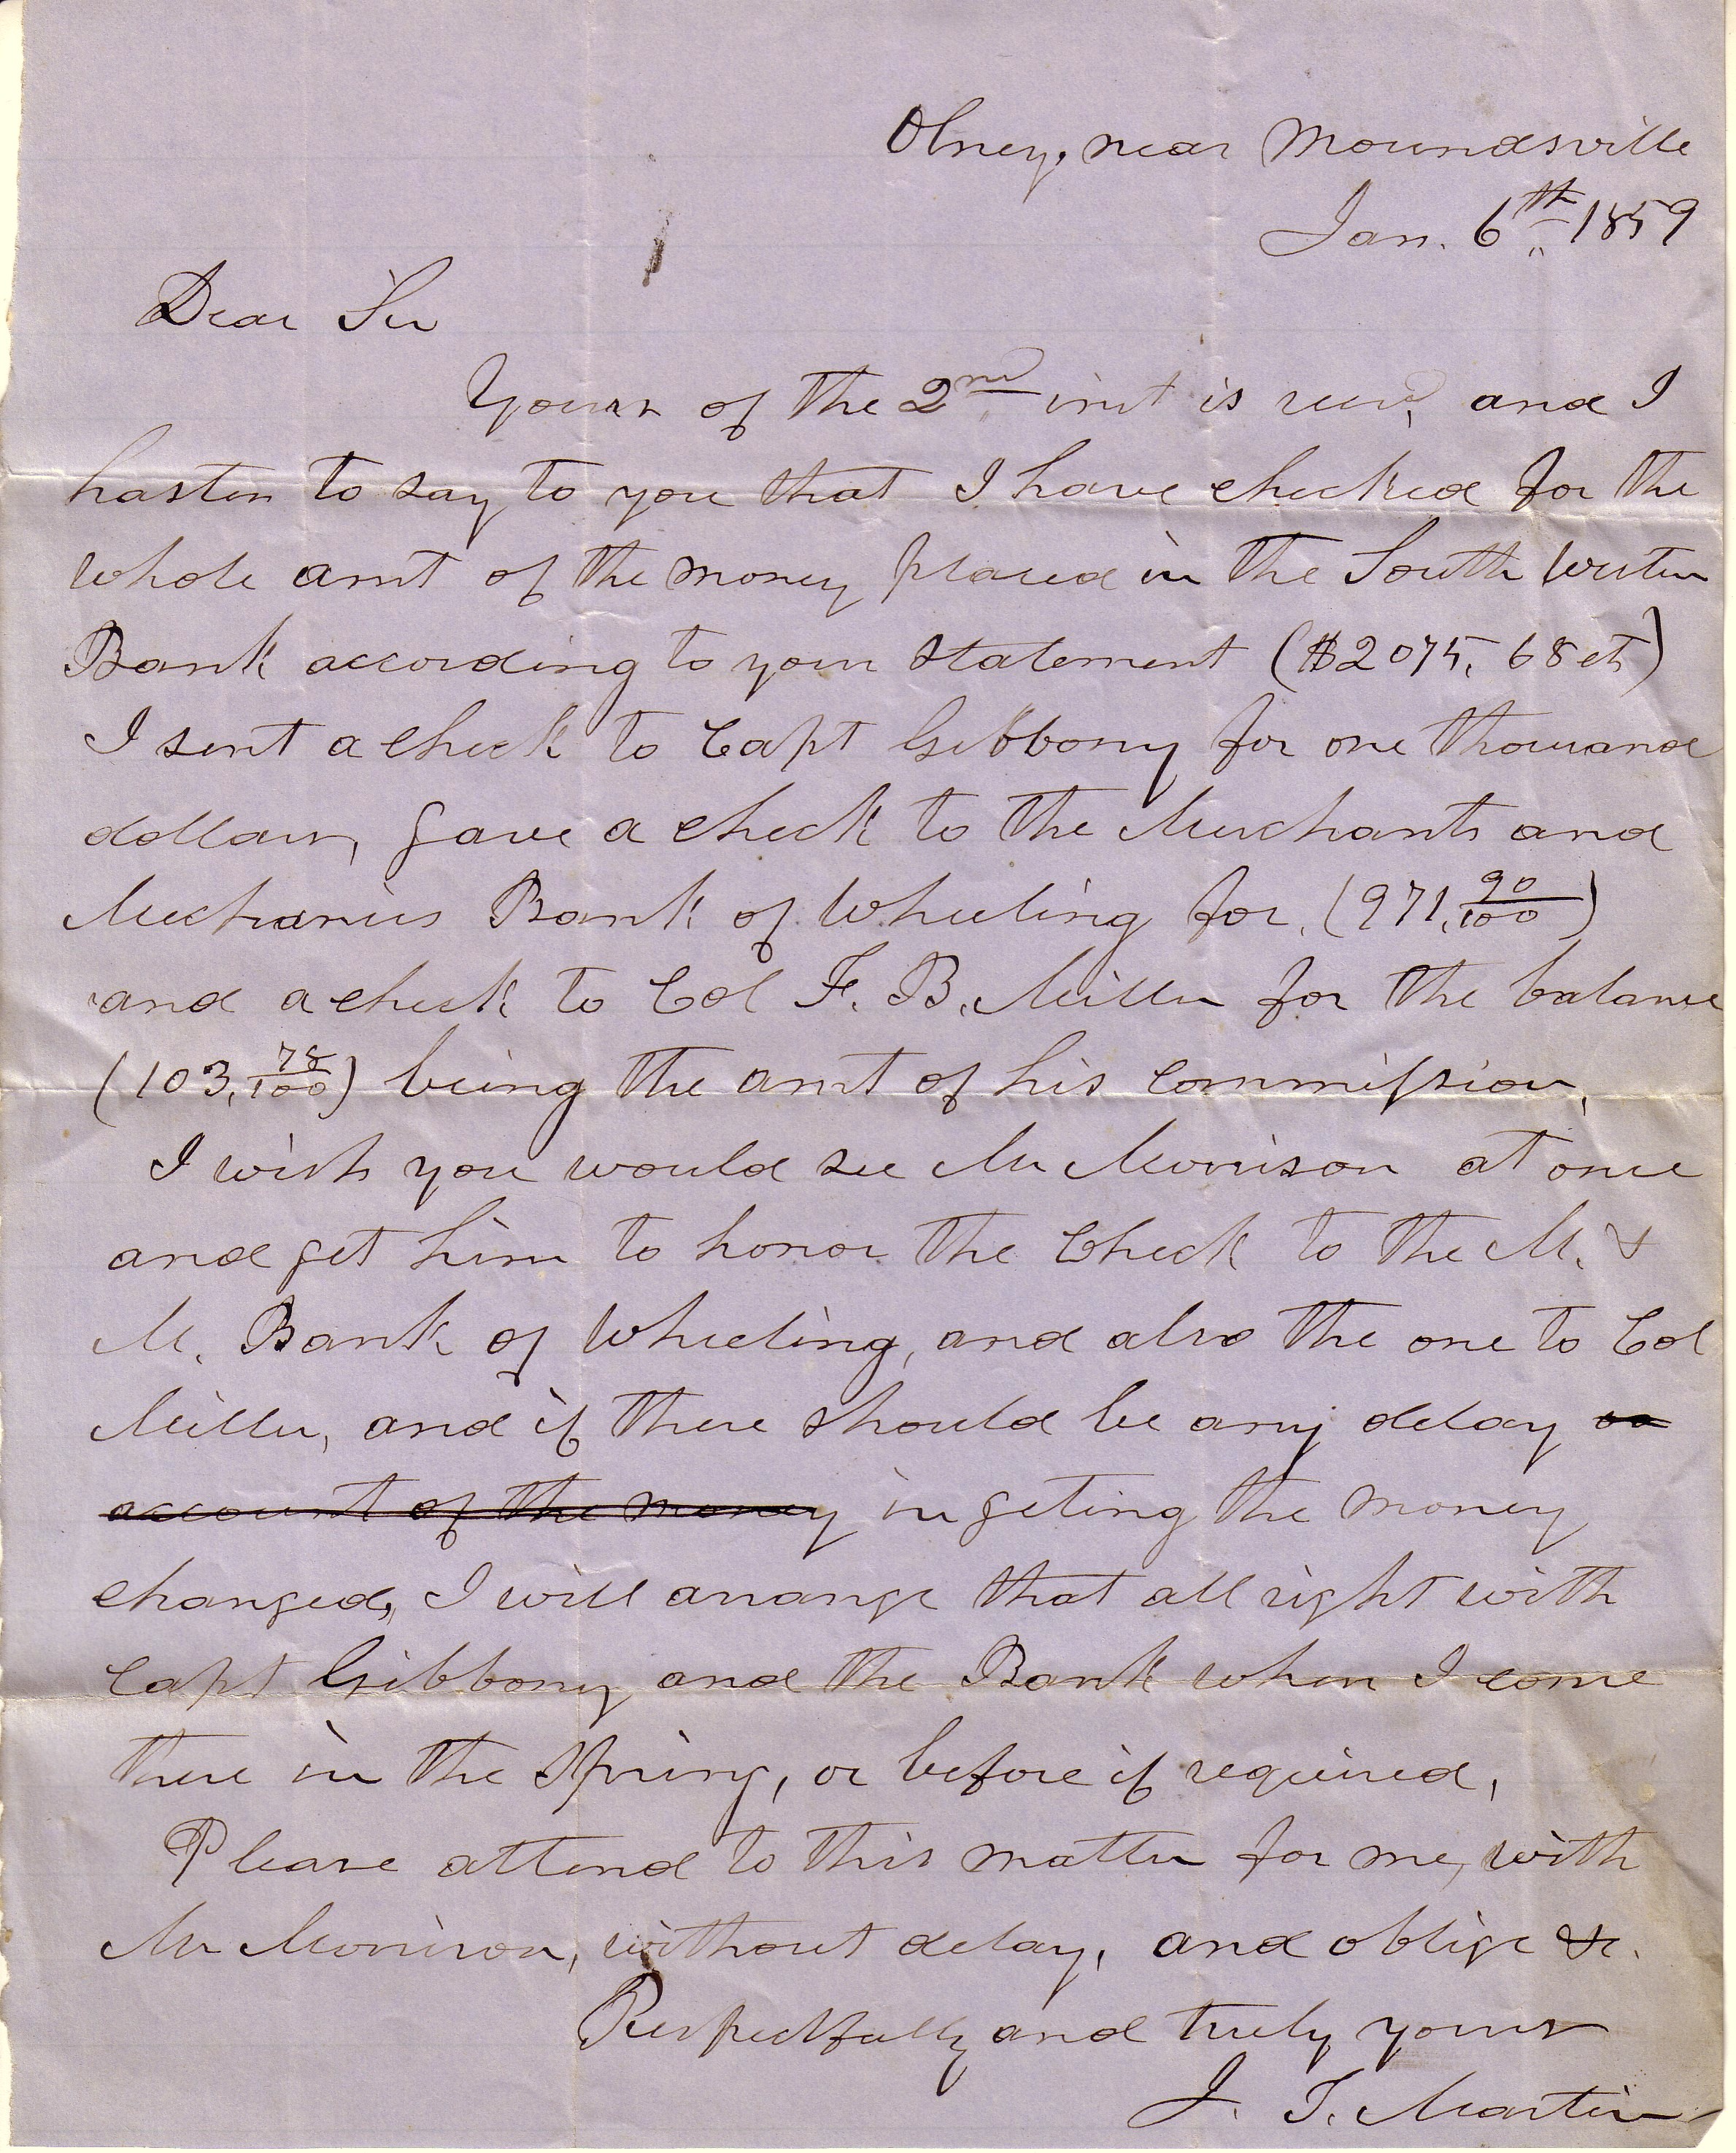 Olney, near Moundsville
Jan. 6th 1859
Dear Sir
Yours of the 2nd inst is recd, and I
hasten to say to you that I have checked for the
whole amt of the money placed in the South Western
Bank according to your statement ($2075, 68 cts)
I sent a check to Capt Gibbony for one thousand
dollars, gave a check to the Merchants and
Mechanics Bank of Wheeling for, (971, 90/100)
and a check to Col F. B. Miller for the balance
(103, 78/100) being the amt of his commission,
I wish you would see Mr Morrison at once
and get him to honor the Check to the M. &
M. Bank of Wheeling, and also the one to Col
Miller, and if there should be any delay on
account of the money in geting the money
changed, I will arrange that all right with
Capt Gibbony and the Bank when I come
there in the Spring, or before if required,
Please attend to this matter for me, with
Mr Morrison, without delay, and oblige &c.
Respectfully and truly yours
J. T. Martin